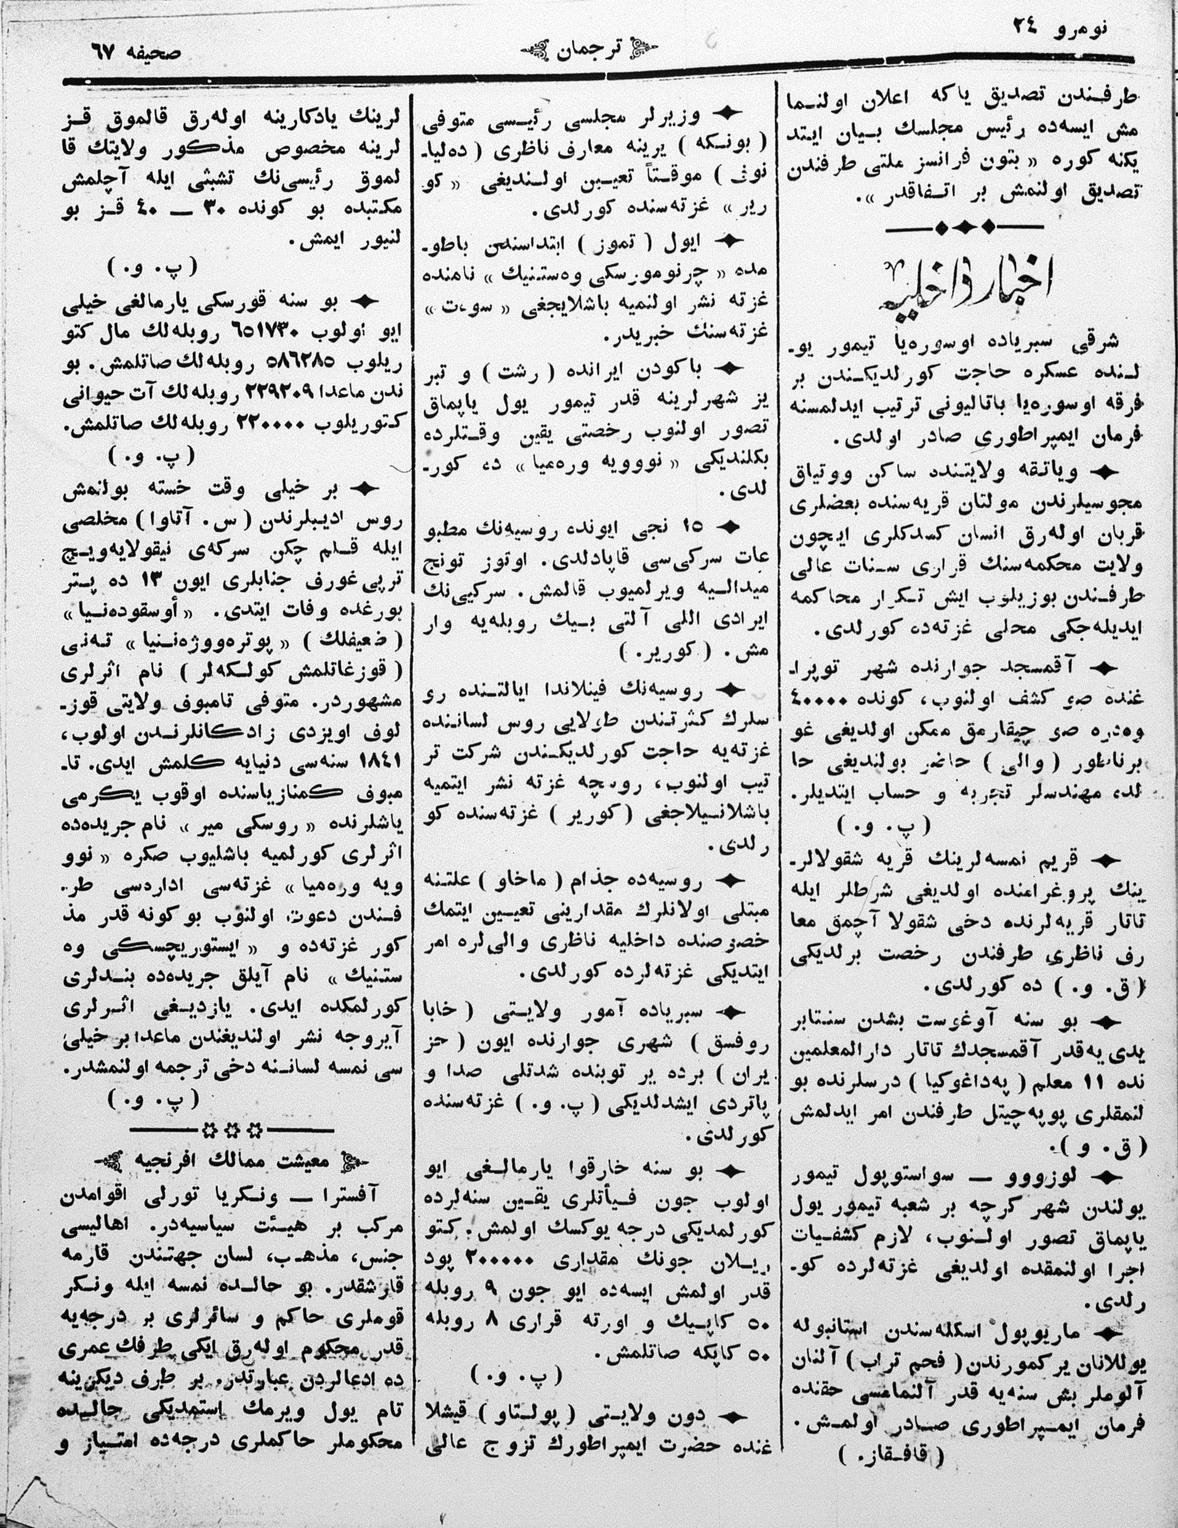 نومرو ٢٤
ترجمان
صحیفه ٦٧
طرفندن تصدیق یاكه اعلان اولنما
مش ایسه‌ده رئیس مجلسك بیان ایتد
یكنه كوره « بتون فرانسز ملتی طرفندن
تصدیق اولنمش بر اتفاقدر ».
اخبار داخلیه
شرقی سبریاده اوسوره‌یا تیمور یو-
لنده عسكره حاجت كورلدیكندن بر
فرقه اوسوره‌یا باتالیونی ترتیب ایدلمسنه
فرمان ایمپراطوری صادر اولدی.
ویاتقه ولایتنده ساكن ووتیاق
مجوسیلرندن مولتان قریه‌سنده بعضلری
قربان اوله‌رق انسان كسدكلری ایچون
ولایت محكمه‌سنك قراری سنات عالی
طرفندن بوزیلوب ایش تكرار محاكمه
ایدیله‌جكی محلی غزته‌ده كورلدی.
آقمسجد جوارنده شهر توپرا-
غنده صو كشف اولنوب، كونده ٤٠٠٠٠
وه‌دره صو چیقارمق ممكن اولدیغی غو
برناطور ( والی ) حاضر بولندیغی حا
لده مهندسلر تجربه و حساب ایتدیلر.
( پ. و. )
قریم نمسه‌لرینك قریه شقولالر-
ینك پروغرامنده اولدیغی شرطلر ایله
تاتار قریه‌لرنده دخی شقولا آچمق معا
رف ناظری طرفندن رخصت برلدیكی
( ق. و. ) ده كورلدی.
بو سنه آوغوست بشدن سنتابر
یدی یه‌قدر آقمسجدك تاتار دارالمعلمین
نده ١١ معلم ( په‌داغوكیا ) درسلرنده بو
لنمقلری پوپه‌چیتل طرفندن امر ایدلمش
( ق. و ).
لوزووو — سواستوپول تیمور
یولندن شهر كرچه بر شعبه تیمور یول
یاپماق تصور اولنوب، لازم كشفیات
اجرا اولنمقده اولدیغی غزته‌لرده كو-
رلدی.
ماریوپول اسكله‌سندن استانبوله
یوللانان یر كمورندن ( فحم تراب ) آلنان
آلوملر بش سنه‌یه قدر آلنمامسی حقنده
فرمان ایمپراطوری صادر اولمش.
( قافقاز. )
وزیرلر مجلسی رئیسی متوفی
( بونكه ) یرینه معارف ناظری ( ده‌لیا-
نوف ) موقتاً تعیین اولندیغی « كو
ریر » غزته‌سنده كورلدی.
ایول ( تموز ) ابتداسندن باطو-
مده « چرنومورسكی وه‌ستنیك » نامنده
غزته نشر اولنمیه باشلایجغی « سوه‌ت »
غزته‌سنك خبریدر.
باكودن ایرانده ( رشت ) و تبر
یز شهرلرینه قدر تیمور یول یاپماق
تصور اولنوب رخصتی یقین وقتلرده
بكلندیكی « نووویه وره‌میا » ده كور-
لدی.
١٥ نجی ایونده روسیه‌نك مطبو
عات سركی‌سی قاپادلدی. اوتوز تونج
میدالیه ویرلمیوب قالمش. سركی‌نك
ایرادی اللی آلتی بیك روبله‌یه وار
مش. ( كوریر. )
روسیه‌نك فینلاندا ایالتنده رو
سلرك كثرتندن طولایی روس لساننده
غزته‌یه حاجت كورلدیكندن شركت تر
تیب اولنوب، روسچه غزته نشر ایتمیه
باشلانیلاجغی ( كوریر ) غزته‌سنده كو
رلدی.
روسیه‌ده جذام ( ماخاو ) علتنه
مبتلی اولانلرك مقدارینی تعیین ایتمك
خصوصنده داخلیه ناظری والی‌لره امر
ایتدیكی غزته‌لرده كورلدی.
سبریاده آمور ولایتی ( خابا
روفسق ) شهری جوارنده ایون ( حز
یران ) برده یر توبنده شدتلی صدا و
پاتردی ایشدلدیكی ( پ. و. ) غزته‌سنده
كورلدی.
بو سنه خارقوا یارمالغی ایو
اولوب جون فیأتلری یقین سنه‌لرده
كورلمدیكی درجه یوكسك اولمش. كتو
ریلان جونك مقداری ٢٠٠٠٠٠ پود
قدر اولمش ایسه‌ده ایو جون ٩ روبله
٥٠ كاپیك و اورته قراری ٨ روبله
٥٠ كاپكه صاتلمش.
( پ. و. )
دون ولایتی ( پولتاو ) قیشلا
غنده حضرت ایمپراطورك تزوج عالی
لرینك یادكارینه اوله‌رق قالموق قز
لرینه مخصوص مذكور ولایتك قا
لموق رئیسی‌نك تشبثی ایله آچلمش
مكتبده بو كونده ٣٠ — ٤٠ قز بو
لنیور ایمش.
( پ. و. )
بو سنه قورسكی یارمالغی خیلی
ایو اولوب ٦٥١٧٣٠ روبله‌لك مال كتو
ریلوب ٥٨٦٢٨٥ روبله‌لك صاتلمش. بو
ندن ماعدا ٢٢٩٢٠٩ روبله‌لك آت حیوانی
كتوریلوب ٢٢٠٠٠٠ روبله‌لك صاتلمش.
( پ. و. )
بر خیلی وقت خسته بولنمش
روس ادیبلرندن ( س. آتاوا ) مخلصی
ایله قلم چكن سركه‌ی نیقولایه‌ویچ
ترپی غورف جنابلری ایون ١٣ ده پتر
بورغده وفات ایتدی. « أوسقوده‌نیا »
( ضعیفلك ) « پوتره‌وو‌ژه‌ننیا » ته‌نی
( قوزغاتلمش كولكه‌لر ) نام اثرلری
مشهوردر. متوفی تامبوف ولایتی قوز-
لوف اویزدی زادكانلرندن اولوب،
١٨٤١ سنه‌سی دنیایه كلمش ایدی. تا-
مبوف كمنازیاسنده اوقوب یكرمی
یاشلرنده « روسكی میر » نام جریده‌ده
اثرلری كورلمیه باشلیوب صكره « نوو
ویه وره‌میا » غزته‌سی اداره‌سی طر-
فندن دعوت اولنوب بو كونه قدر مذ
كور غزته‌ده و « ایستوریچسكی وه
ستنیك » نام آیلق جریده‌ده بندلری
كورلمكده ایدی. یازدیغی اثرلری
آیروجه نشر اولندیغندن ماعدا بر خیلی
سی نمسه لساننه دخی ترجمه اولنمشدر.
( پ. و. )
معیشت ممالك افرنجیه
آفسترا — ونكریا تورلی اقوامدن
مركب بر هیئت سیاسیه‌در. اهالیسی
جنس، مذهب، لسان جهتندن قارمه
قارشقدر. بو حالده نمسه ایله ونكر
قوملری حاكم و سائرلری بر درجه‌یه
قدر محكوم اوله‌رق ایكی طرفك عمری
ده ادعالردن عبارتدر. بر طرف دیكرینه
تام یول ویرمك استمدیكی حالده
محكوملر حاكملری درجه‌ده امتیاز و